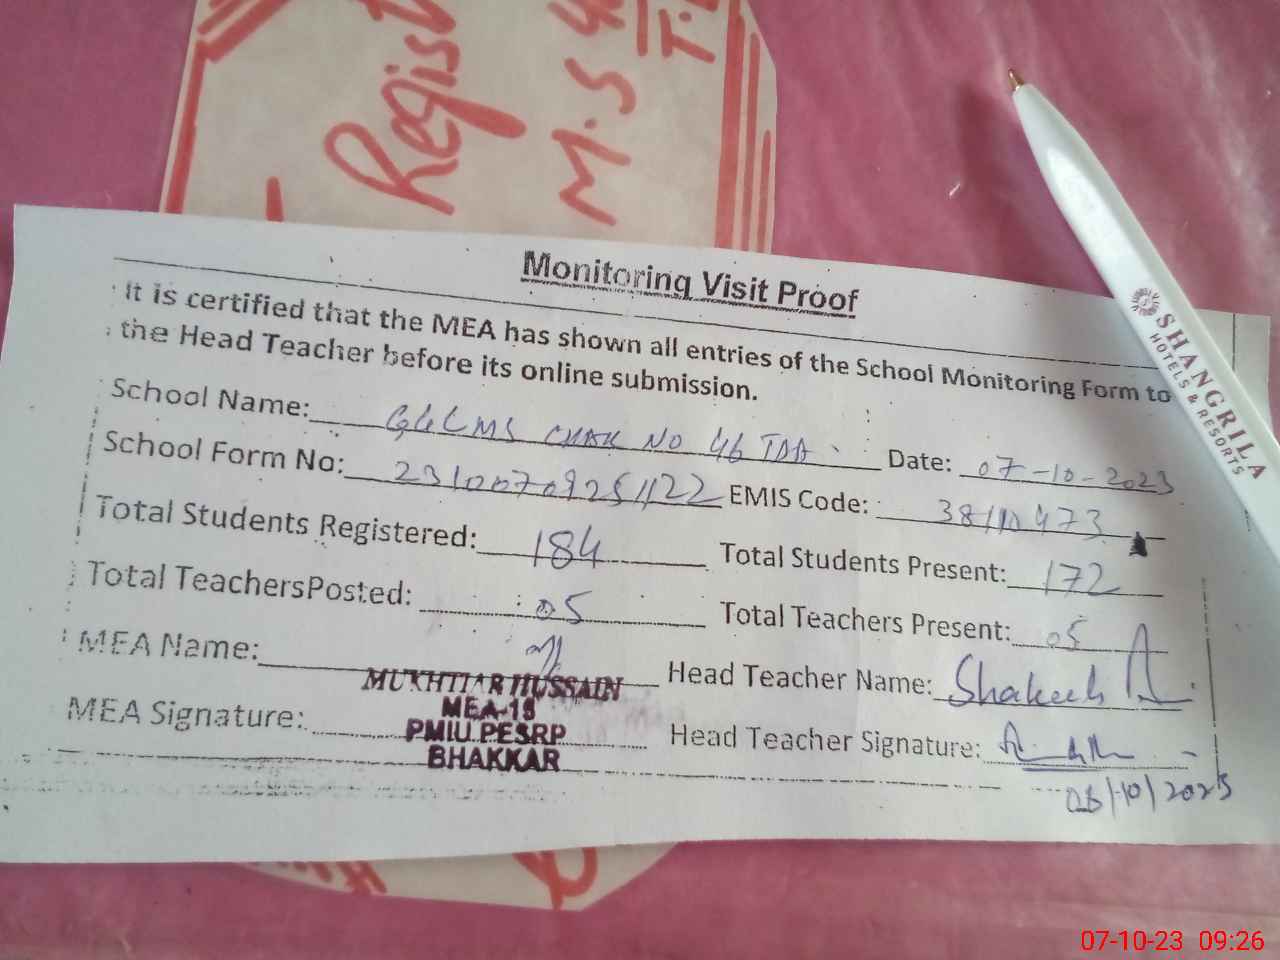 Regist
M.S 4
T.
Monitoring Visit Proof
It is certified that the MEA has shown all entries of the School Monitoring Form to
the Head Teacher before its online submission.
School Name: CHAK NO 46 TDA Date: 07-10-2023
School Form No: EMIS Code:
Total Students Registered: 184 Total Students Present: 172
Total TeachersPosted: 05 Total Teachers Present: 05
MEA Name: Head Teacher Name:
MUKHTIAR HUSSAIN
MEA-18
PMIU PESRP
BHAKKAR
MEA Signature: Head Teacher Signature:
SHANGRILA
HOTELS & RESORTS
07-10-23 09:26